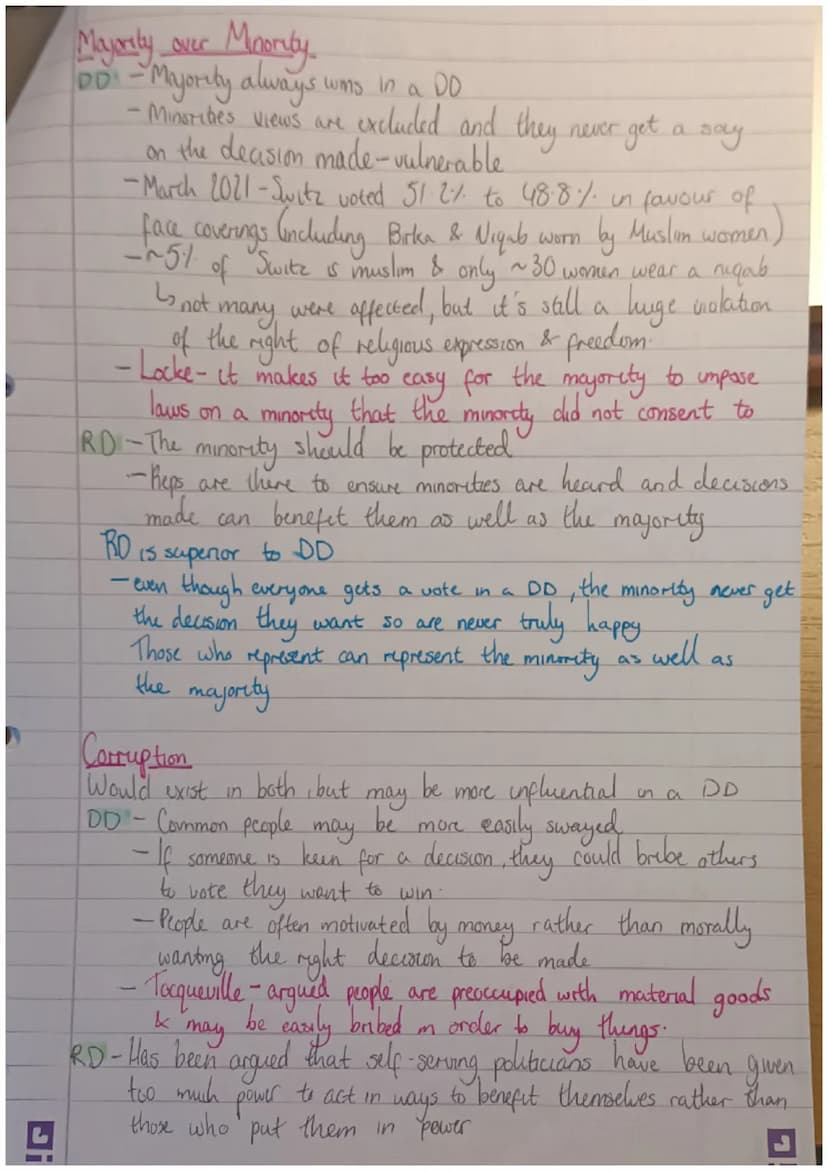 Majority over Minority
DD - Majority always wins in a DD
- Minorities views are excluded and they never get a say
on the decision made - vulnerable
- March 2021 - Switz voted 51.2% to 48.8% in favour of
face coverings (including Birka & Niqab worn by Muslim women)
- ~5% of Switz is muslim & only ~30 women wear a niqab
↳ not many were affected, but it's still a huge violation
of the right of religious expression & freedom.
- Locke - it makes it too easy for the majority to impose
laws on a minority that the minority did not consent to
RD - The minority should be protected
- Reps are there to ensure minorities are heard and decisions
made can benefit them as well as the majority
RD is superior to DD
- even though everyone gets a vote in a DD, the minority never get
the decision they want so are never truly happy
Those who represent can represent the minority as well as
the majority
Corruption
Would exist in both, but may be more influential in a DD
DD - Common people may be more easily swayed
- If someone is keen for a decision, they could bribe others
to vote they want to win.
- People are often motivated by money rather than morally
wanting the right decision to be made
- Tocqueville - argued people are preoccupied with material goods
& may be easily bribed in order to buy things.
RD - Has been argued that self-serving politicians have been given
too much power to act in ways to benefit themselves rather than
those who put them in power